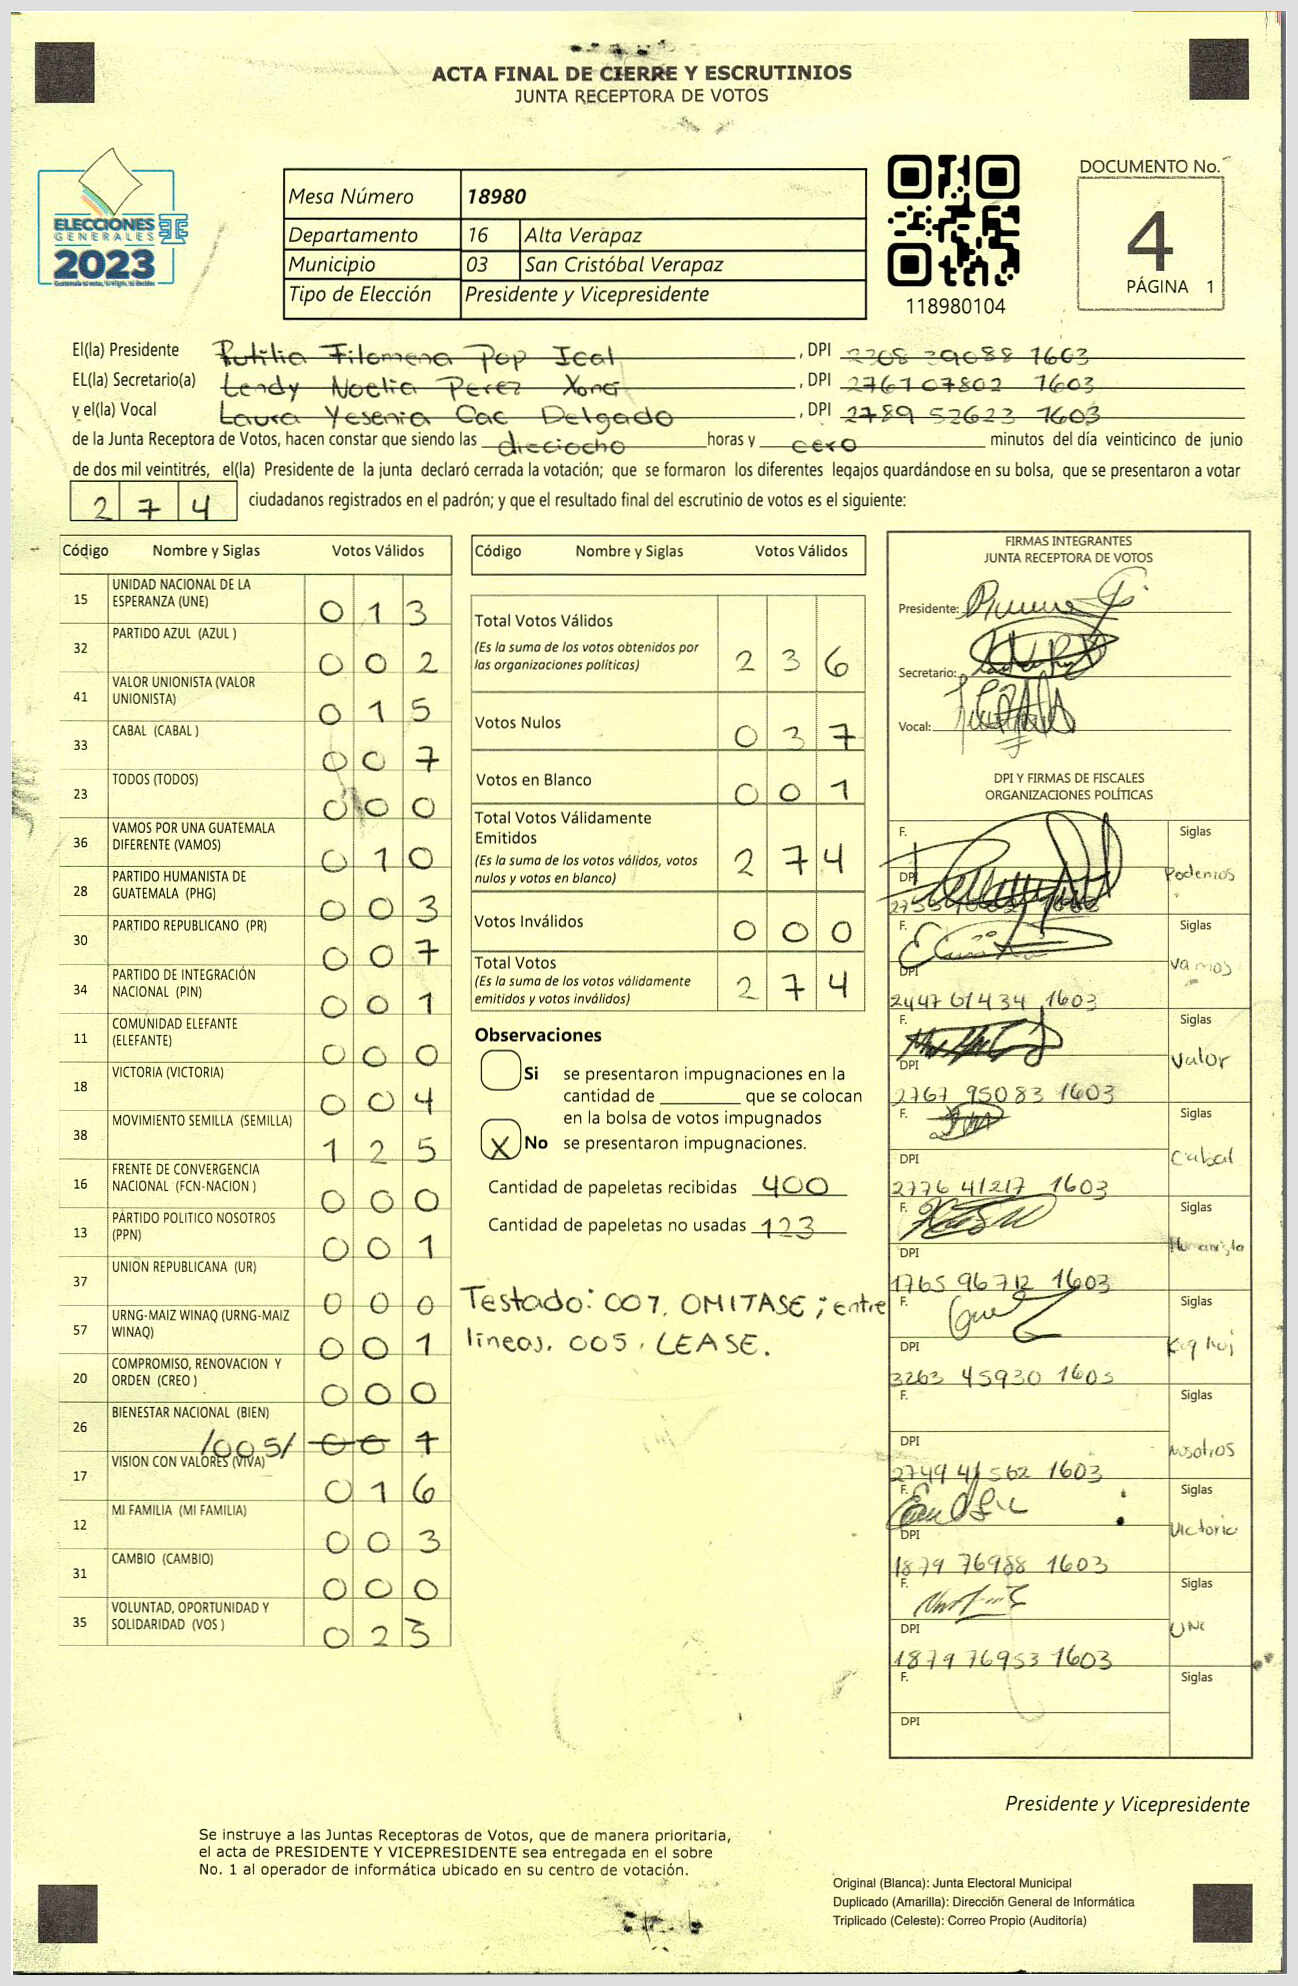 ACTA FINAL DE CIERRE Y ESCRUTINIOS
JUNTA RECEPTORA DE VOTOS
ELECCIONES
GENERALES
2023
Mesa Número 18980
Departamento 16 Alta Verapaz
Municipio 03 San Cristóbal Verapaz
Tipo de Elección Presidente y Vicepresidente
118980104
DOCUMENTO No.
4
PÁGINA 1
El(la) Presidente Filomena Pop Ical , DPI 1603
EL(la) Secretario(a) Lendy Noelia Perez , DPI 2761 07802 1603
y el(la) Vocal Laura Yesenia Cac Delgado , DPI 2789 52623 1603
de la Junta Receptora de Votos, hacen constar que siendo las dieciocho horas y cero minutos del día veinticinco de junio
de dos mil veintitrés, el(la) Presidente de la junta declaró cerrada la votación; que se formaron los diferentes legajos quardándose en su bolsa, que se presentaron a votar
274 ciudadanos registrados en el padrón; y que el resultado final del escrutinio de votos es el siguiente:
Código Nombre y Siglas Votos Válidos
15 UNIDAD NACIONAL DE LA ESPERANZA (UNE) 013
32 PARTIDO AZUL (AZUL ) 002
41 VALOR UNIONISTA (VALOR UNIONISTA) 015
33 CABAL (CABAL ) 007
23 TODOS (TODOS) 000
36 VAMOS POR UNA GUATEMALA DIFERENTE (VAMOS) 010
28 PARTIDO HUMANISTA DE GUATEMALA (PHG) 003
30 PARTIDO REPUBLICANO (PR) 007
34 PARTIDO DE INTEGRACIÓN NACIONAL (PIN) 001
11 COMUNIDAD ELEFANTE (ELEFANTE) 000
18 VICTORIA (VICTORIA) 004
38 MOVIMIENTO SEMILLA (SEMILLA) 125
16 FRENTE DE CONVERGENCIA NACIONAL (FCN-NACION ) 000
13 PARTIDO POLITICO NOSOTROS (PPN) 001
37 UNION REPUBLICANA (UR) 000
57 URNG-MAIZ WINAQ (URNG-MAIZ WINAQ) 001
20 COMPROMISO, RENOVACION Y ORDEN (CREO ) 000
26 BIENESTAR NACIONAL (BIEN) /005/ 007
17 VISION CON VALORES (VIVA) 016
12 MI FAMILIA (MI FAMILIA) 003
31 CAMBIO (CAMBIO) 000
35 VOLUNTAD, OPORTUNIDAD Y SOLIDARIDAD (VOS ) 023
Código Nombre y Siglas Votos Válidos
Total Votos Válidos 236
(Es la suma de los votos obtenidos por
las organizaciones políticas)
Votos Nulos 037
Votos en Blanco 001
Total Votos Válidamente
Emitidos 274
(Es la suma de los votos válidos, votos
nulos y votos en blanco)
Votos Inválidos 000
Total Votos 274
(Es la suma de los votos válidamente
emitidos y votos inválidos)
Observaciones
Si se presentaron impugnaciones en la
cantidad de ________ que se colocan
en la bolsa de votos impugnados
X No se presentaron impugnaciones.
Cantidad de papeletas recibidas 400
Cantidad de papeletas no usadas 123
Testado: 007, OMITASE; entre
lineas, 005, LEASE.
FIRMAS INTEGRANTES
JUNTA RECEPTORA DE VOTOS
Presidente:
Secretario:
Vocal:
DPI Y FIRMAS DE FISCALES
ORGANIZACIONES POLÍTICAS
F. Siglas
DPI Podemos
F. Siglas
DPI Vamos
2447 61434 1603
F. Siglas
DPI Valor
2767 95083 1603
F. Siglas
DPI Cabal
2776 41217 1603
F. Siglas
DPI Humanista
1765 96712 1603
F. Siglas
DPI
3263 45930 1603
F. Siglas
DPI Nosotros
2749 41562 1603
F. Siglas
DPI Victoria
1879 76988 1603
F. Siglas
DPI UNE
1879 76953 1603
F. Siglas
DPI
Presidente y Vicepresidente
Se instruye a las Juntas Receptoras de Votos, que de manera prioritaria,
el acta de PRESIDENTE Y VICEPRESIDENTE sea entregada en el sobre
No. 1 al operador de informática ubicado en su centro de votación.
Original (Blanca): Junta Electoral Municipal
Duplicado (Amarilla): Dirección General de Informática
Triplicado (Celeste): Correo Propio (Auditoría)